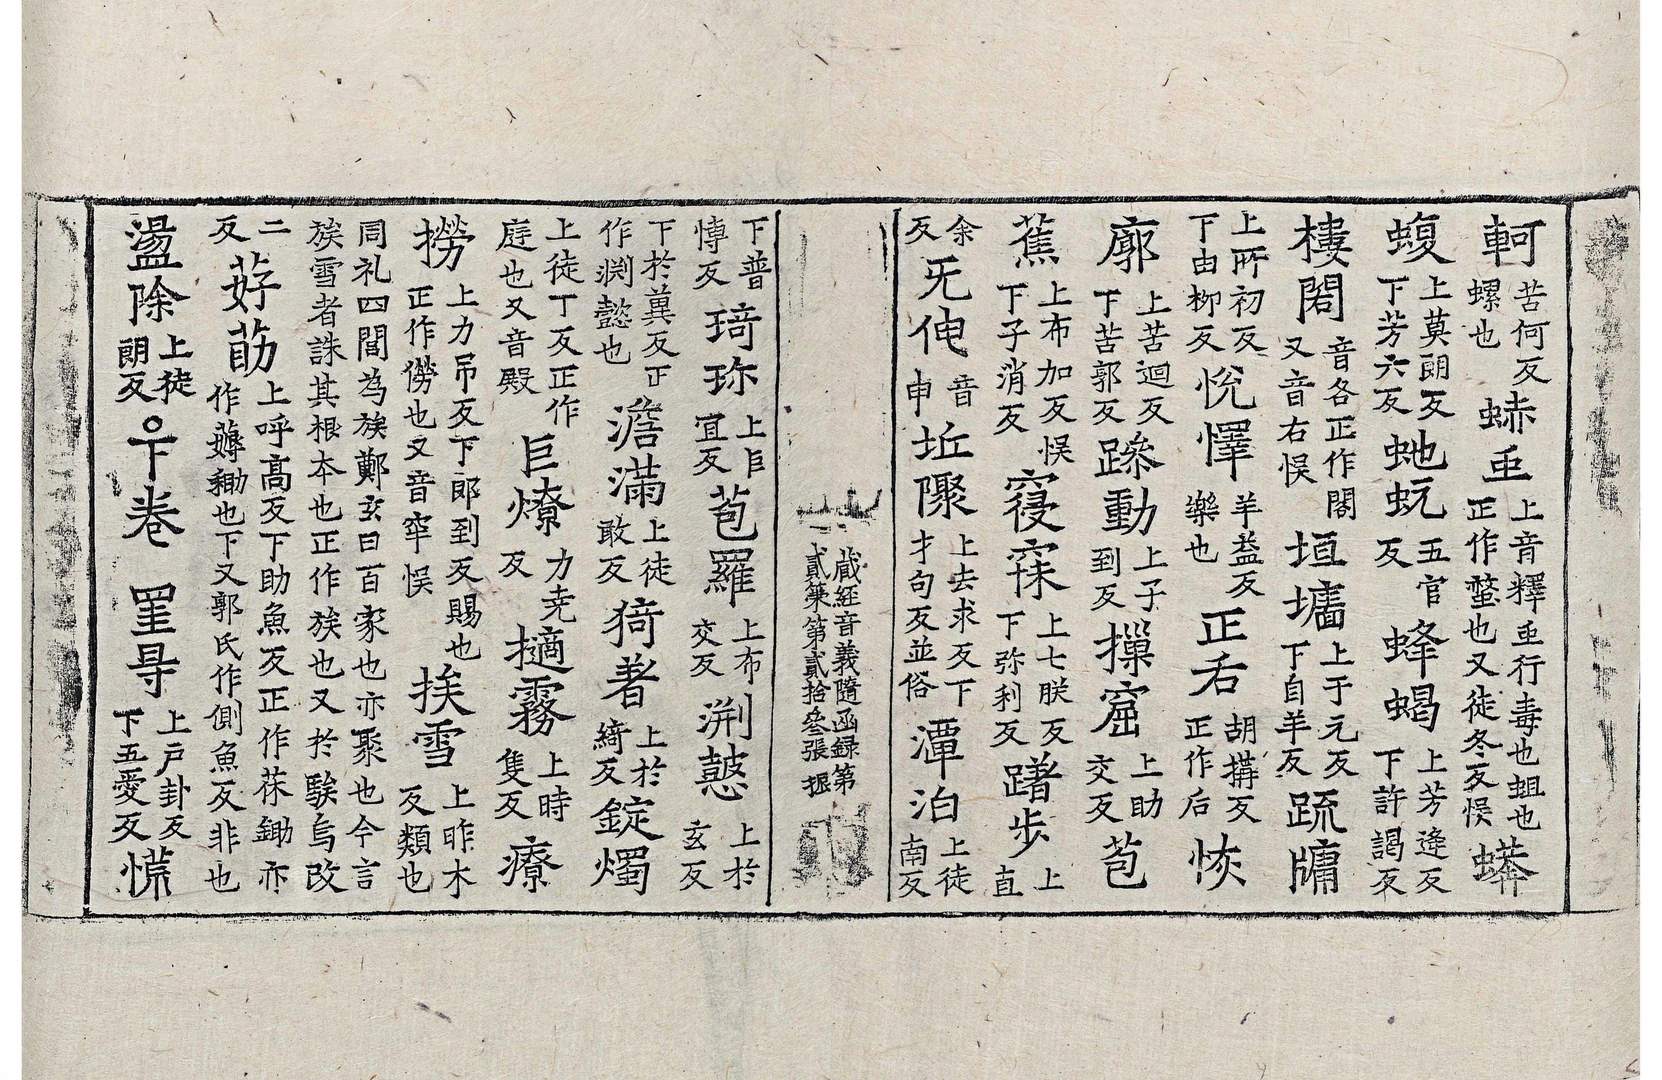 軻苦何反螺也䗪䖝上音釋䖝行毒也蛆也正作螫也又徒冬反悞蟒
蝮上莫朗反下芳六反虵蚖五官反蜂蝎上芳逄反下許謁反
樓閣音各正作閣又音右悞垣墻上于元反下自羊反䟽牗
上所初反下由柳反恱懌羊益反樂也正后胡搆反正作后恢
廓上苦迴反下苦郭反𨅶動上子到反摷窟上助交反苞
蕉上布加反悞下子消反寑寐上七朕反下弥利反躇步上直
余反旡伷音申丘聚上去求反下才句反並俗潭泊上徒南反
藏經音義隨函録第貳第貳拾叄張 振
下普愽反琦珎上巨宜反苞羅上布交反渆懿上於玄反
下於兾反正作渊懿也澹滿上徒敢反猗著上於綺反錠燭
上徒丁反正作庭也又音殿巨燎力尭反擿霧上時隻反療
撈上力吊反下郎到反賜也正作僗也又音牢悞挨雪上昨木反類也
同礼四閭為族鄭玄曰百家也亦聚也今言族雪者誅其根本也正作族也又於騃烏改
二反茠莇上呼髙反下助魚反正作茠鋤亦作薅耡也下又郭氏作側魚反非也
盪除上徒朗反○下卷 罣㝵上戶卦反下五愛反慌